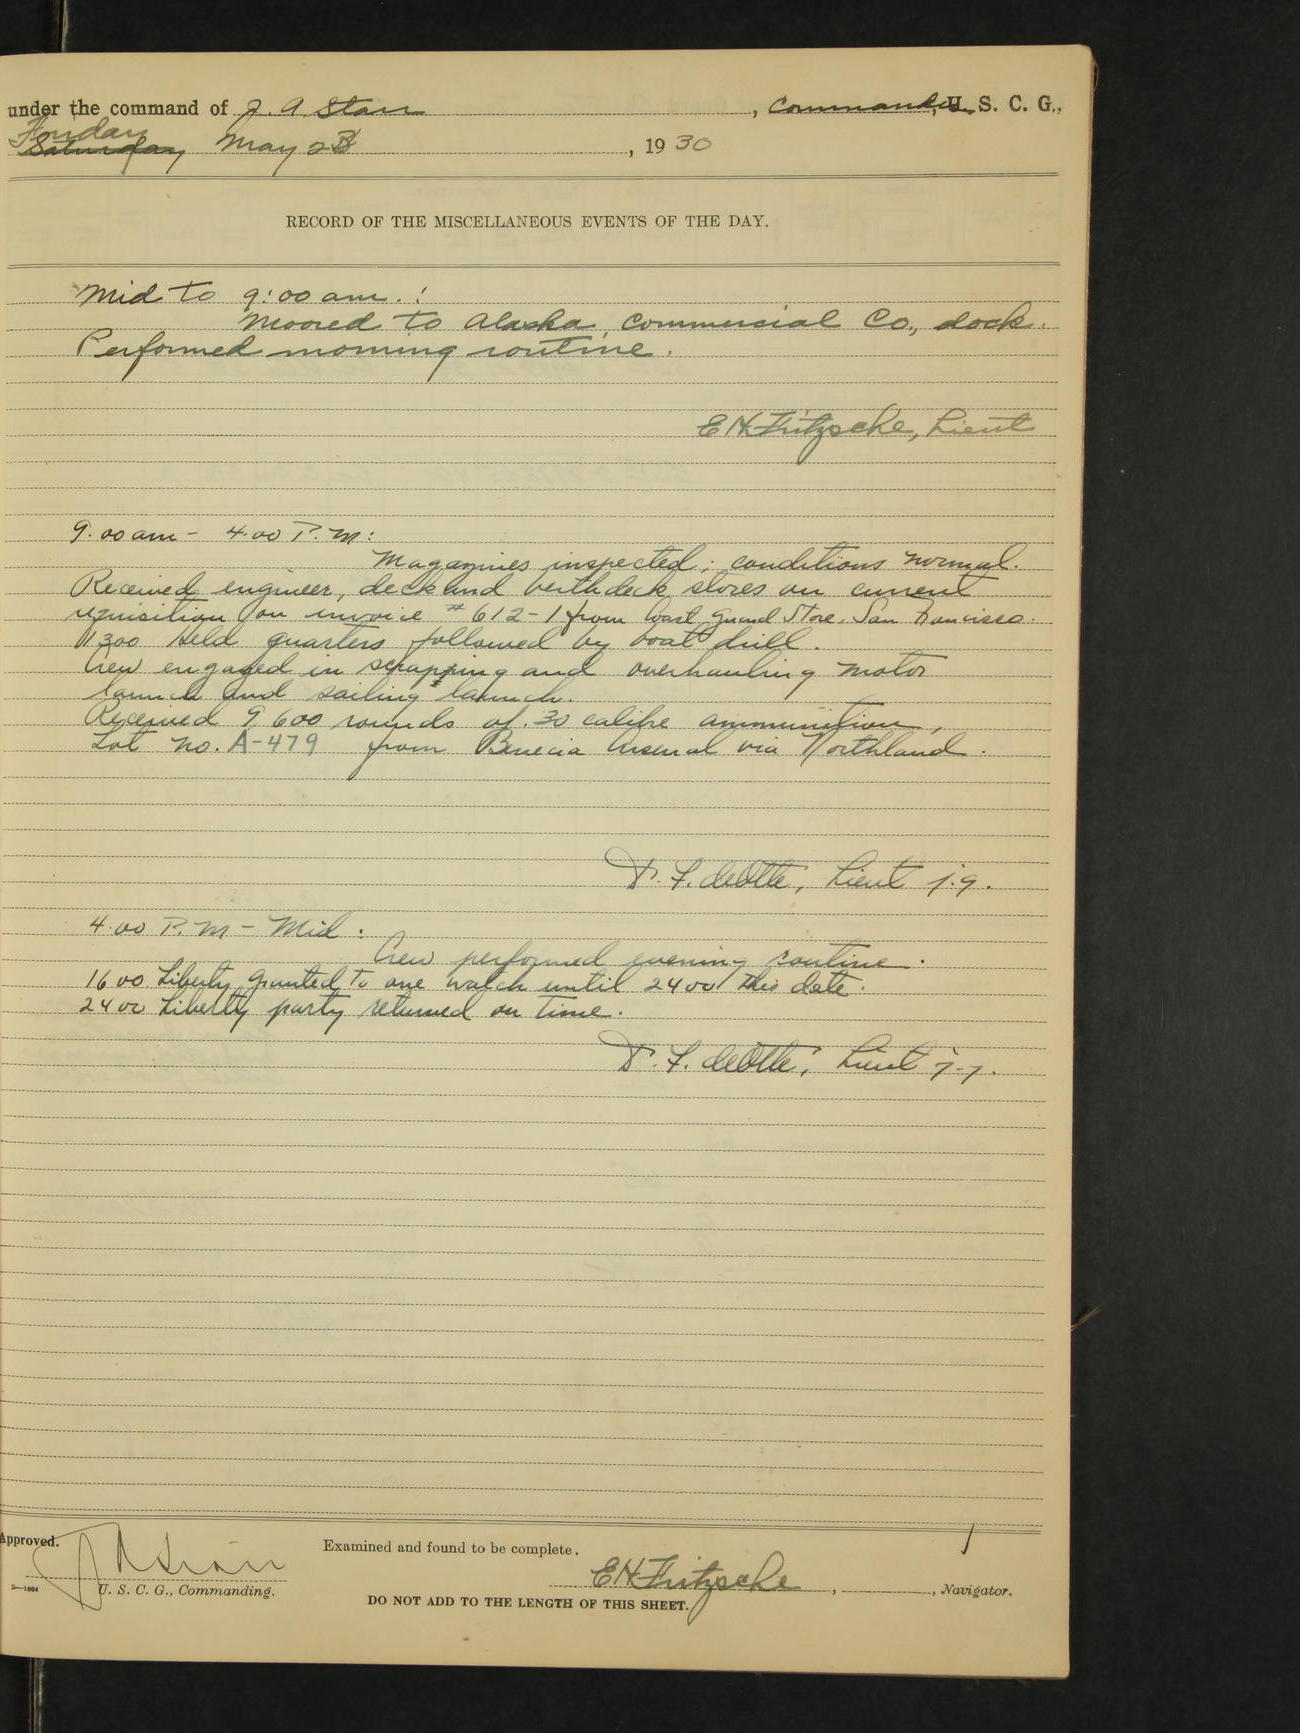 under the command of J. A. Starr, Commander, U. S. C. G.,
Friday
Saturday May 23, 1930
RECORD OF THE MISCELLANEOUS EVENTS OF THE DAY.
Mid to 9:00 am. :
Moored to Alaska, Commercial Co., dock.
Performed morning routine.
E H Fritzsche, Lieut
9.00 am - 4.00 P.M:
Magazines inspected; conditions normal.
Received engineer, deck and berthdeck stores on current
requisition on invoice # 612-1 from Coast Guard Store, San Francisco.
1300 Held quarters followed by boat drill.
Crew engaged in scrapping and overhauling motor
launch and sailing launch.
Received 9600 rounds of .30 calibre ammunition,
Lot No. A-479 from Benecia Arsenal via Northland.
F. deOtte, Lieut j.g.
4.00 P.M - Mid :
Crew performed evening routine.
1600 Liberty granted to one watch until 2400 this date.
2400 Liberty party returned on time.
F. deOtte, Lieut j.g.
Approved.
J A Starr
U. S. C. G., Commanding.
2—1664
Examined and found to be complete.
E H Fritzsche, , Navigator.
DO NOT ADD TO THE LENGTH OF THIS SHEET.